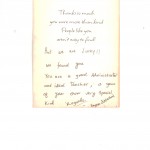 Thanks so much
you were more than kind
People like you
aren't easy to find
But we are lucky!
we found you
You are a good Administrator
and ideal Teacher, is your
of your own very special
kind